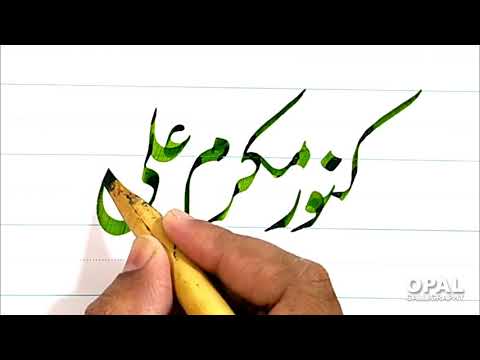 کنور مکرم علی
OPAL
CALLIGRAPHY